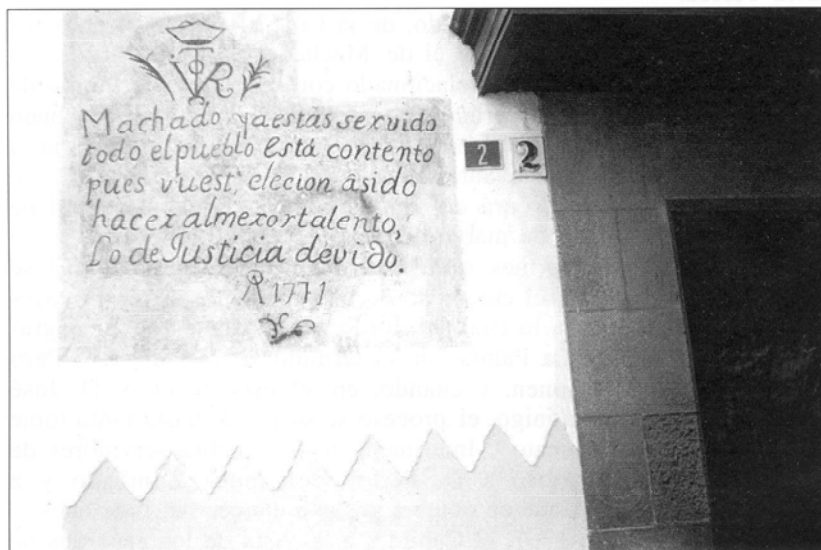 VTOR
Machado ya estás servido
todo el pueblo está contento
pues vuest. elecion â sido
hacer al mexor talento,
Lo de Justicia devido.
1771
2 2